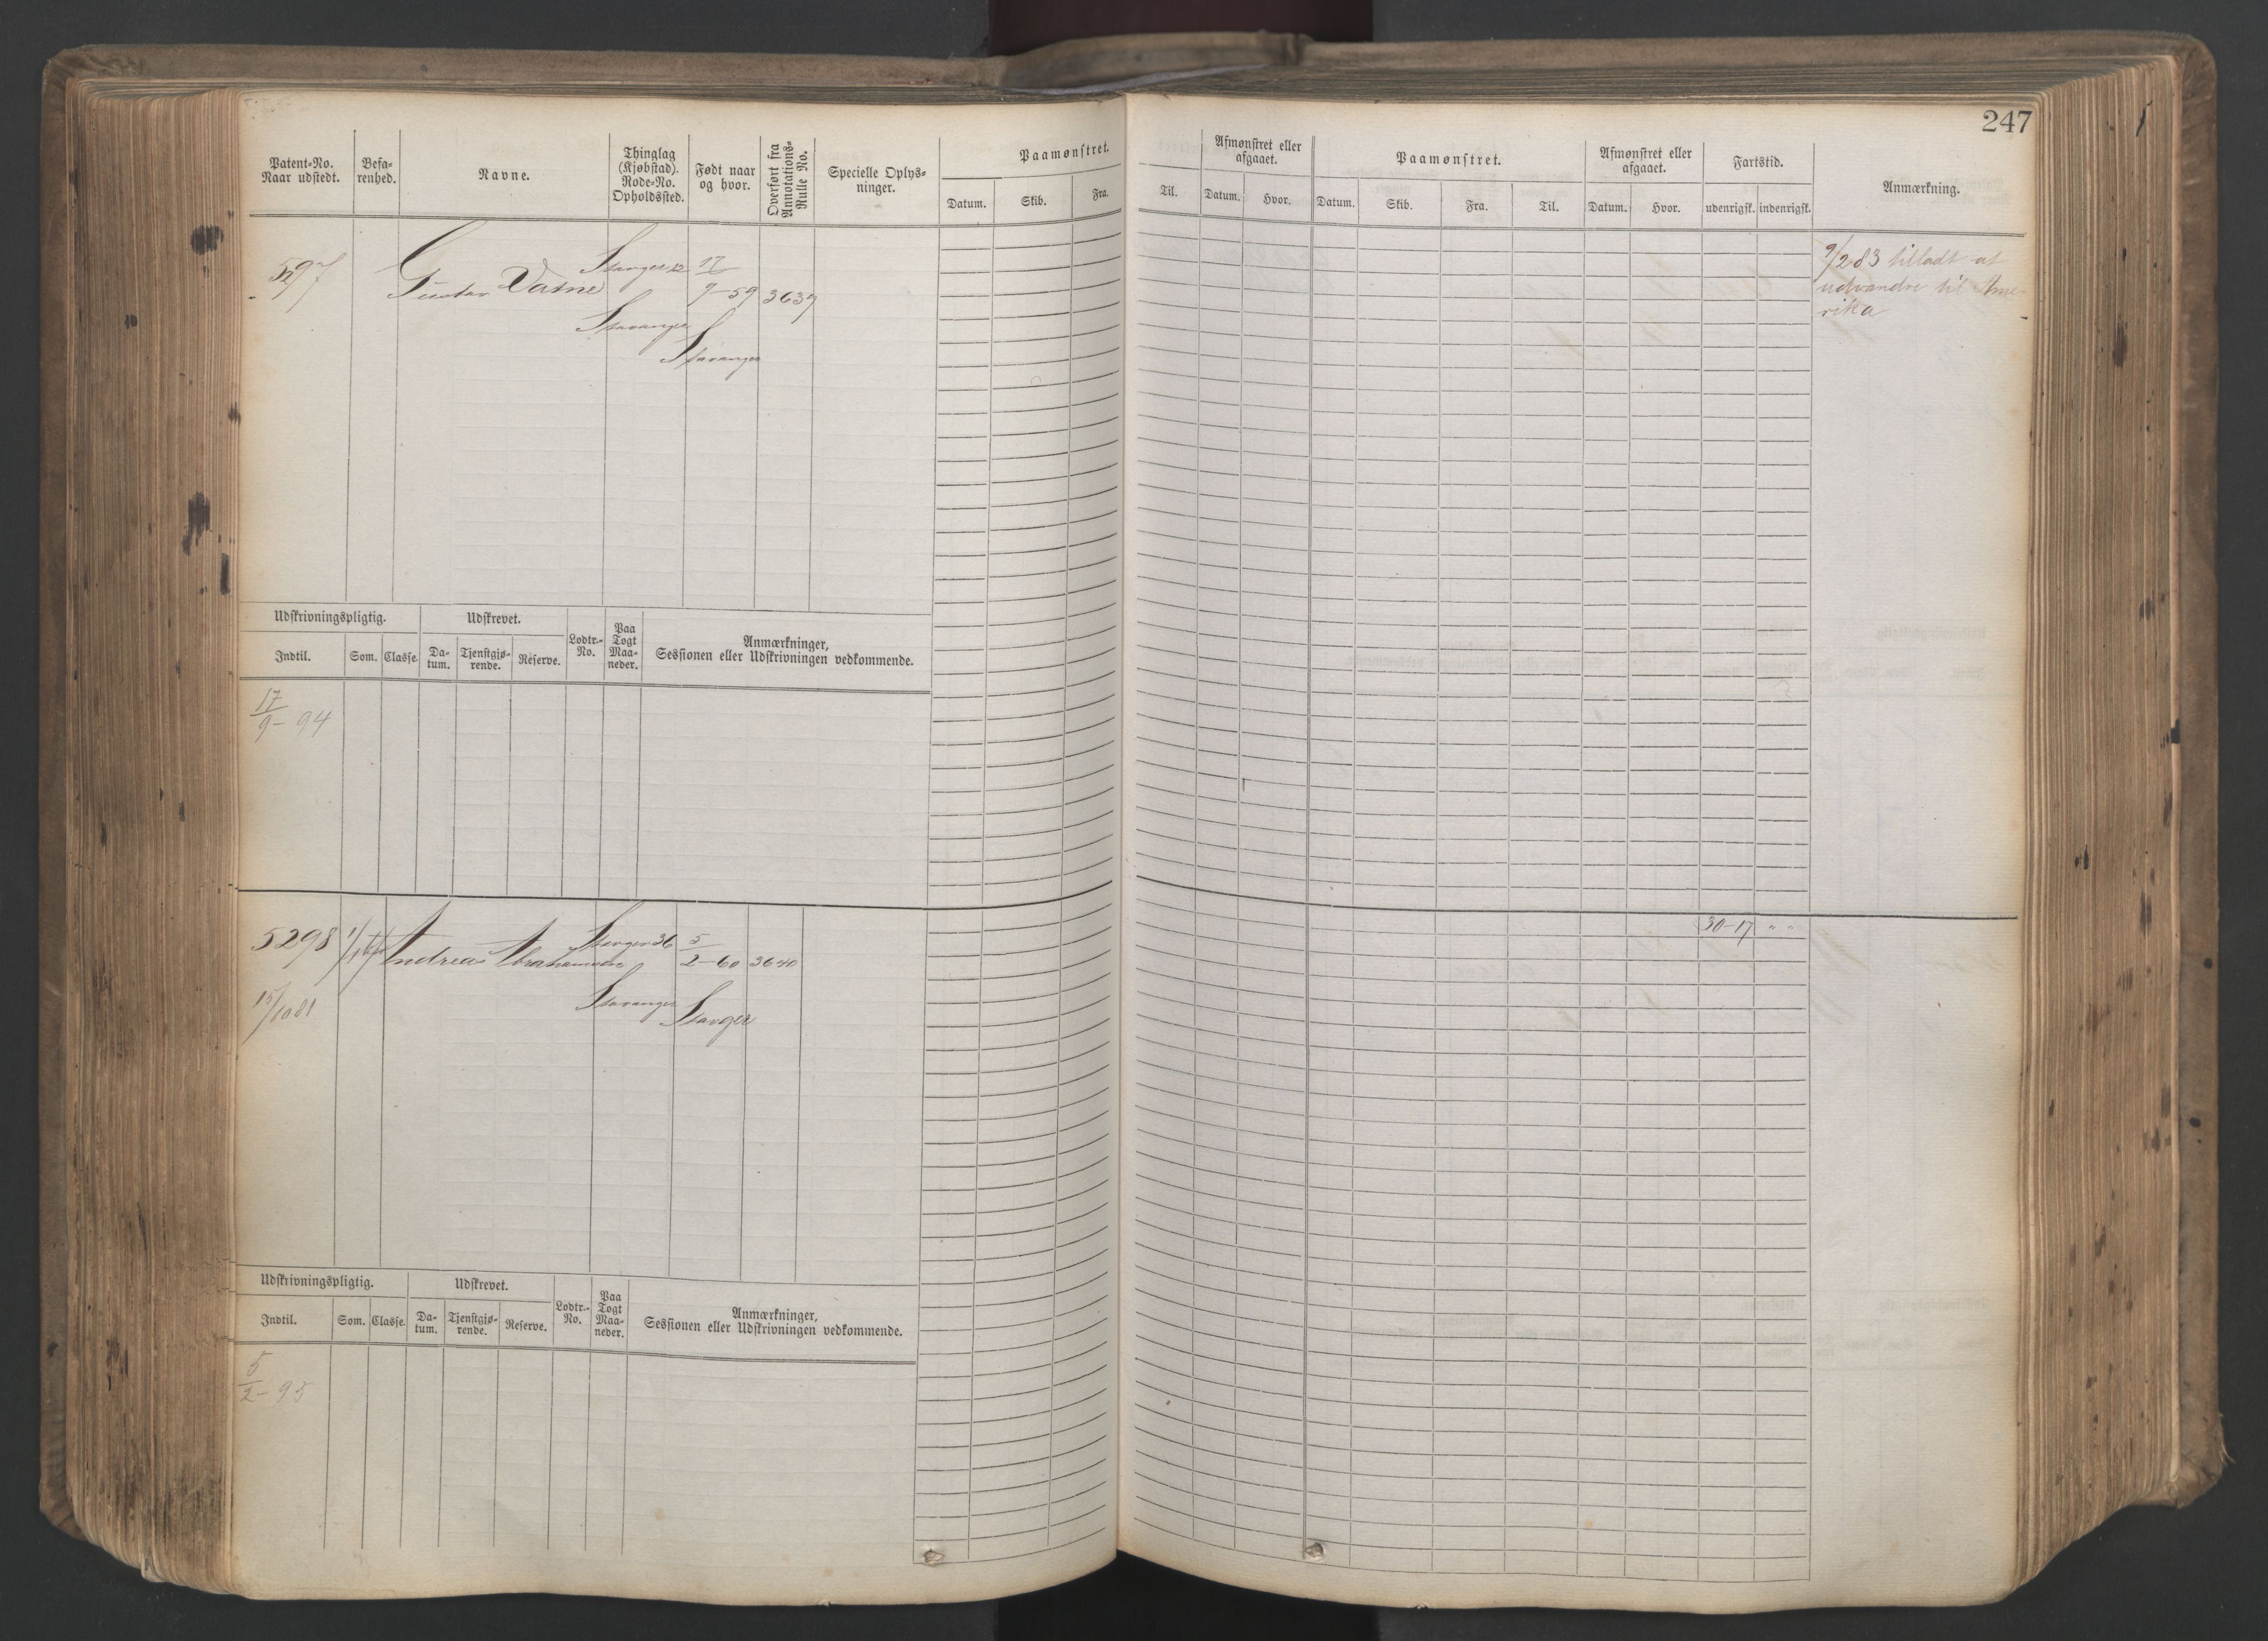 247
Patent-No. Naar udstedt.
Befa- renhed.
Navne.
Thinglag (Kjøbstad). Rode-No. Opholdssted.
Født naar og hvor.
Overført fra Annotations- Rulle No.
Specielle Oplys- ninger.
Paamønstret.
Datum. Skib. Fra. Til.
Afmønstret eller afgaaet.
Datum. Hvor.
Paamønstret.
Datum. Skib. Fra. Til.
Afmønstret eller afgaaet.
Datum. Hvor.
Fartstid.
udenrigsk. indenrigsk.
Anmærkning.
5297
Gustav Vatne
17/9-59 3639
Stavanger
Stavanger
9/2 83 tilladt at
udvandre til Ame-
rika
Udskrivningspligtig.
Indtil. Som. Classe.
Udskrevet.
Da- tum. Tjenstgjø- rende. Reserve.
Lodtr.- No.
Paa Togt Maa- neder.
Anmærkninger,
Sessionen eller Udskrivningen vedkommende.
17/9-94
5298
Andreas Abrahamsen
36
5/2-60 3640
30-17 " "
15/10 81
Stavanger
Stavger
Udskrivningspligtig.
Indtil. Som. Classe.
Udskrevet.
Da- tum. Tjenstgjø- rende. Reserve.
Lodtr.- No.
Paa Togt Maa- neder.
Anmærkninger,
Sessionen eller Udskrivningen vedkommende.
5/2-95